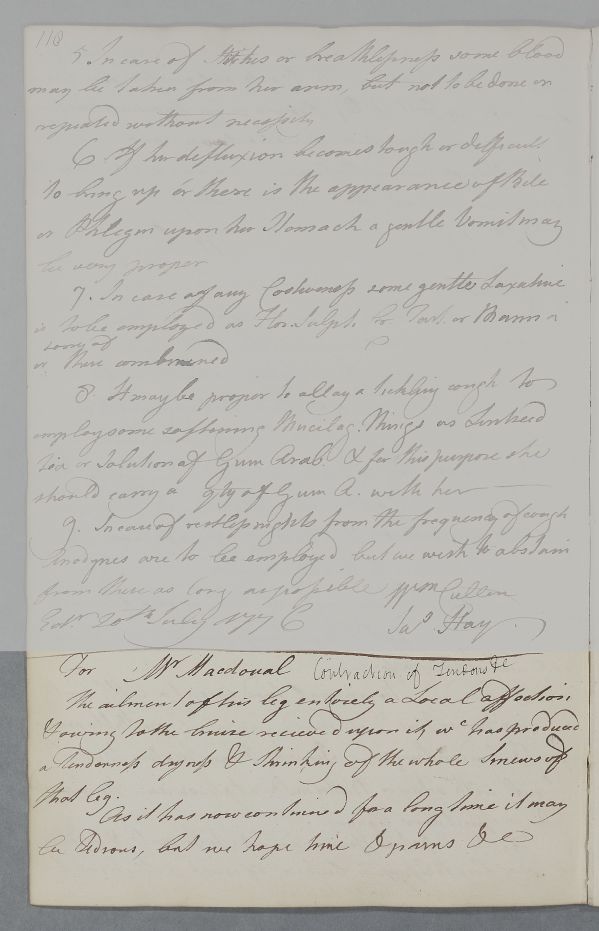 118
5. In case of Stitches or breathlessness some blood
may be taken from her arm, but not to be done or
repeated without necessity
6 If her defluxion becomes tough or difficult
to bring up or there is the appearance of Bile
or Phlegm upon her Stomach a gentle Vomit may
be very proper
7. In case of any Costiveness some gentle Laxative
is to be employed as Flor. Sulph. Cr. Tart. or Manna
or some of these combined
8. It may be proper to allay a tickling cough to
employ some softening Mucilag. things as Linseed
tea or Solution of Gum Arab. & for this purpose she
should carry a qty of Gum A. with her
9. In case of restless nights from the frequency of cough
Anodynes are to be employed but we wish to abstain
from these as long as possible Wm Cullen
Edr. 20th July 1776 Jas Hay.
For Mr Macdoual Contraction of Tendons &c
The ailment of his leg entirely a Local affection,
& owing to the bruise recieved upon it, wc has produced
a Tenderness dryness & Shrinking of the whole Sinews of
that leg.
As it has now continued for a long time it may
be Tedious, but we hope time & pains &c